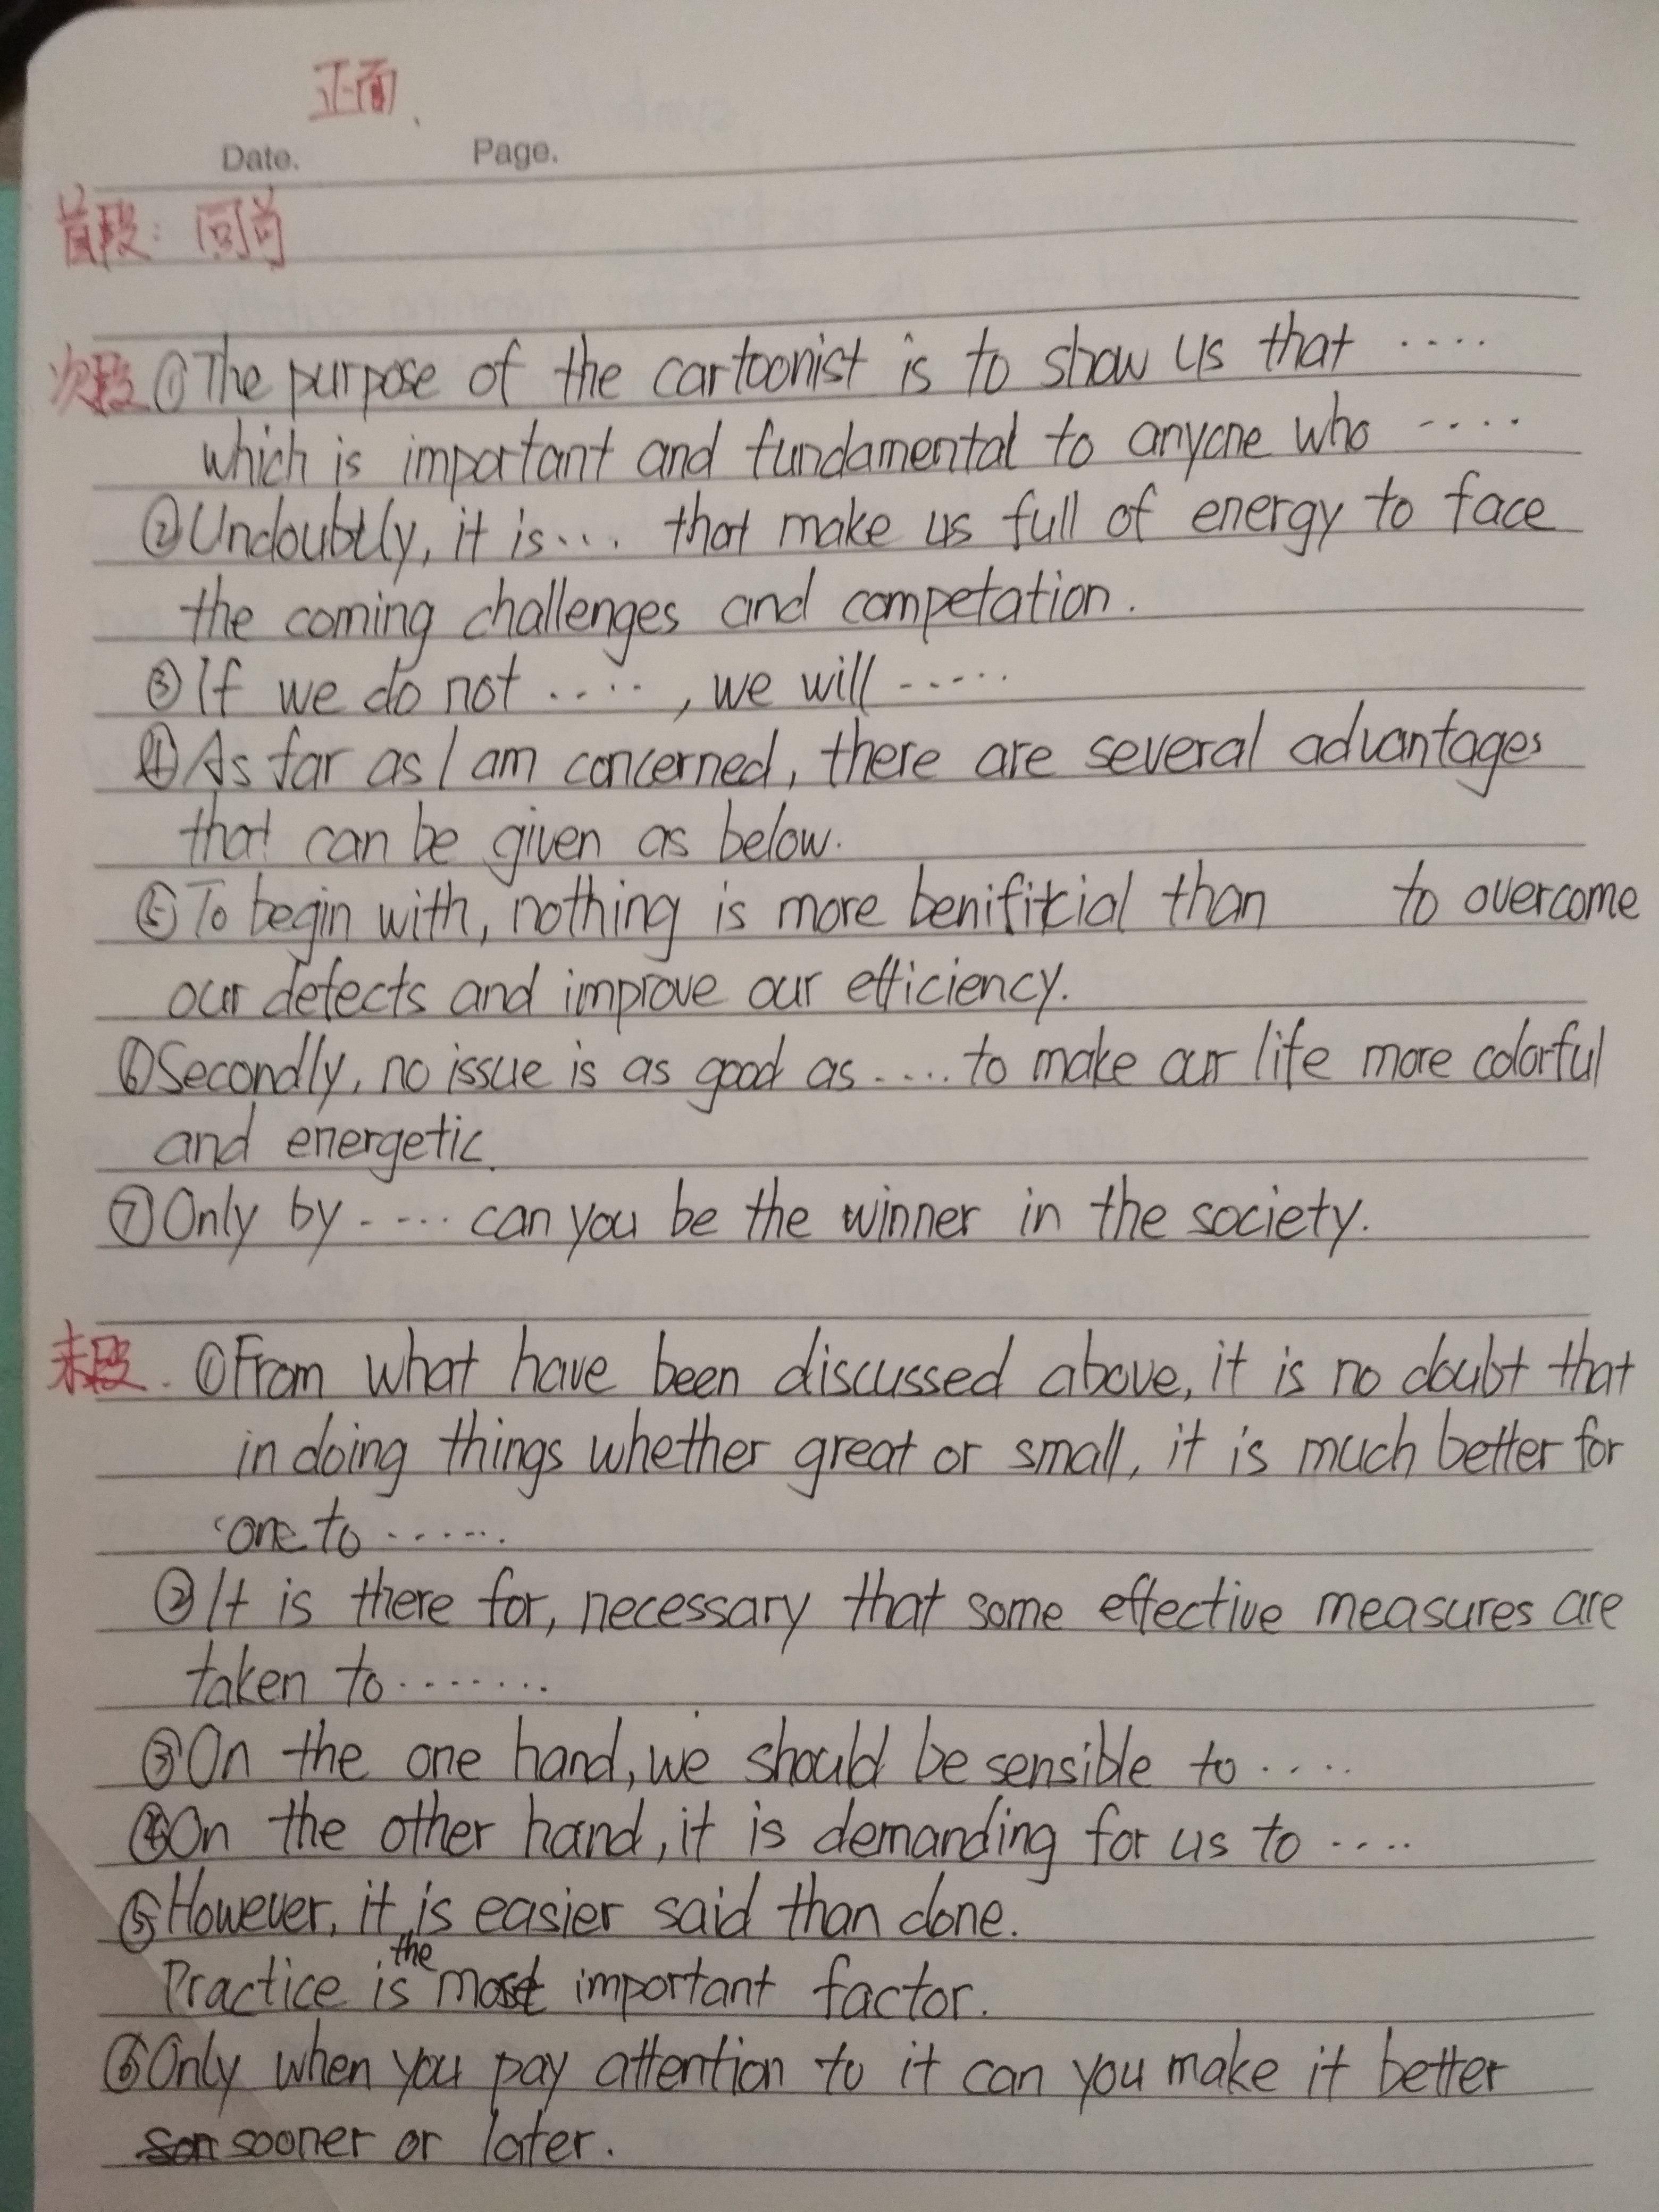 正面.
Date. Page.
首段: 同前
次段 ①The purpose of the cartoonist is to show us that ....
which is important and fundamental to anyone who ....
②Undoubtly, it is... that make us full of energy to face
the coming challenges and competation.
③If we do not ...., we will .....
④As far as I am concerned, there are several advantages
that can be given as below.
⑤To begin with, nothing is more benificial than to overcome
our defects and improve our efficiency.
⑥Secondly, no issue is as good as .... to make our life more colorful
and energetic.
⑦Only by .... can you be the winner in the society.
末段. ①From what have been discussed above, it is no doubt that
in doing things whether great or small, it is much better for
one to ......
②It is there for, necessary that some effective measures are
taken to .......
③On the one hand, we should be sensible to ....
④On the other hand, it is demanding for us to ....
⑤However, it is easier said than done.
Practice is the most important factor.
⑥Only when you pay attention to it can you make it better
sooner or later.